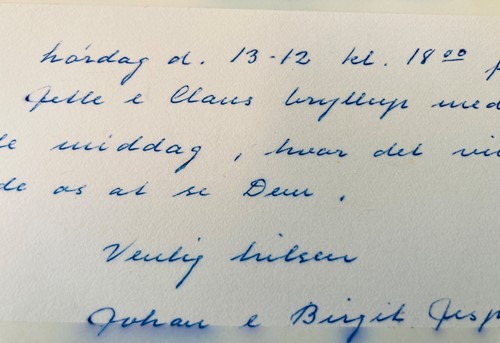 lørdag d. 13-12 kl. 18 00
Jette & Claus bryllup med
middag, hvor det vi
de os at se Dem.
Venlig hilsen
Johan & Birgit Jesp